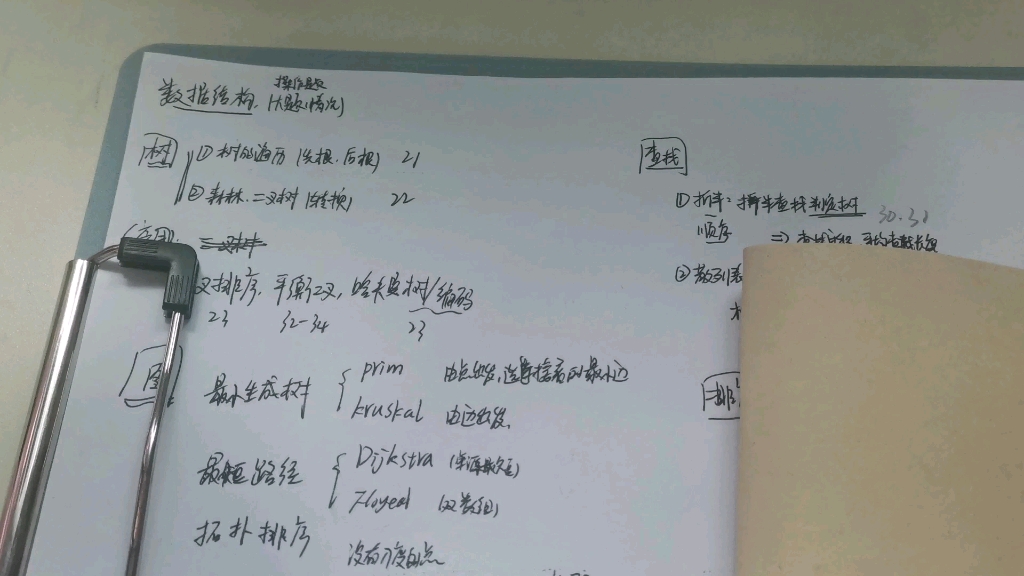 操作题
数据结构 (大题情况)
树 ① 树的遍历 (先根、后根) 21
② 森林、二叉树 (转换) 22
应用
叉排序, 平衡二叉, 哈夫曼树/编码
23 32-34 23
图
最小生成树 { prim 由点出发,选择挨着的最小边
kruskal 由边出发.
最短路径 { Dijkstra
Floyed (双数组)
拓扑排序 没有入度的点
查找
① 折半: 折半查找判定树
顺序 30.31
② 散列表
排